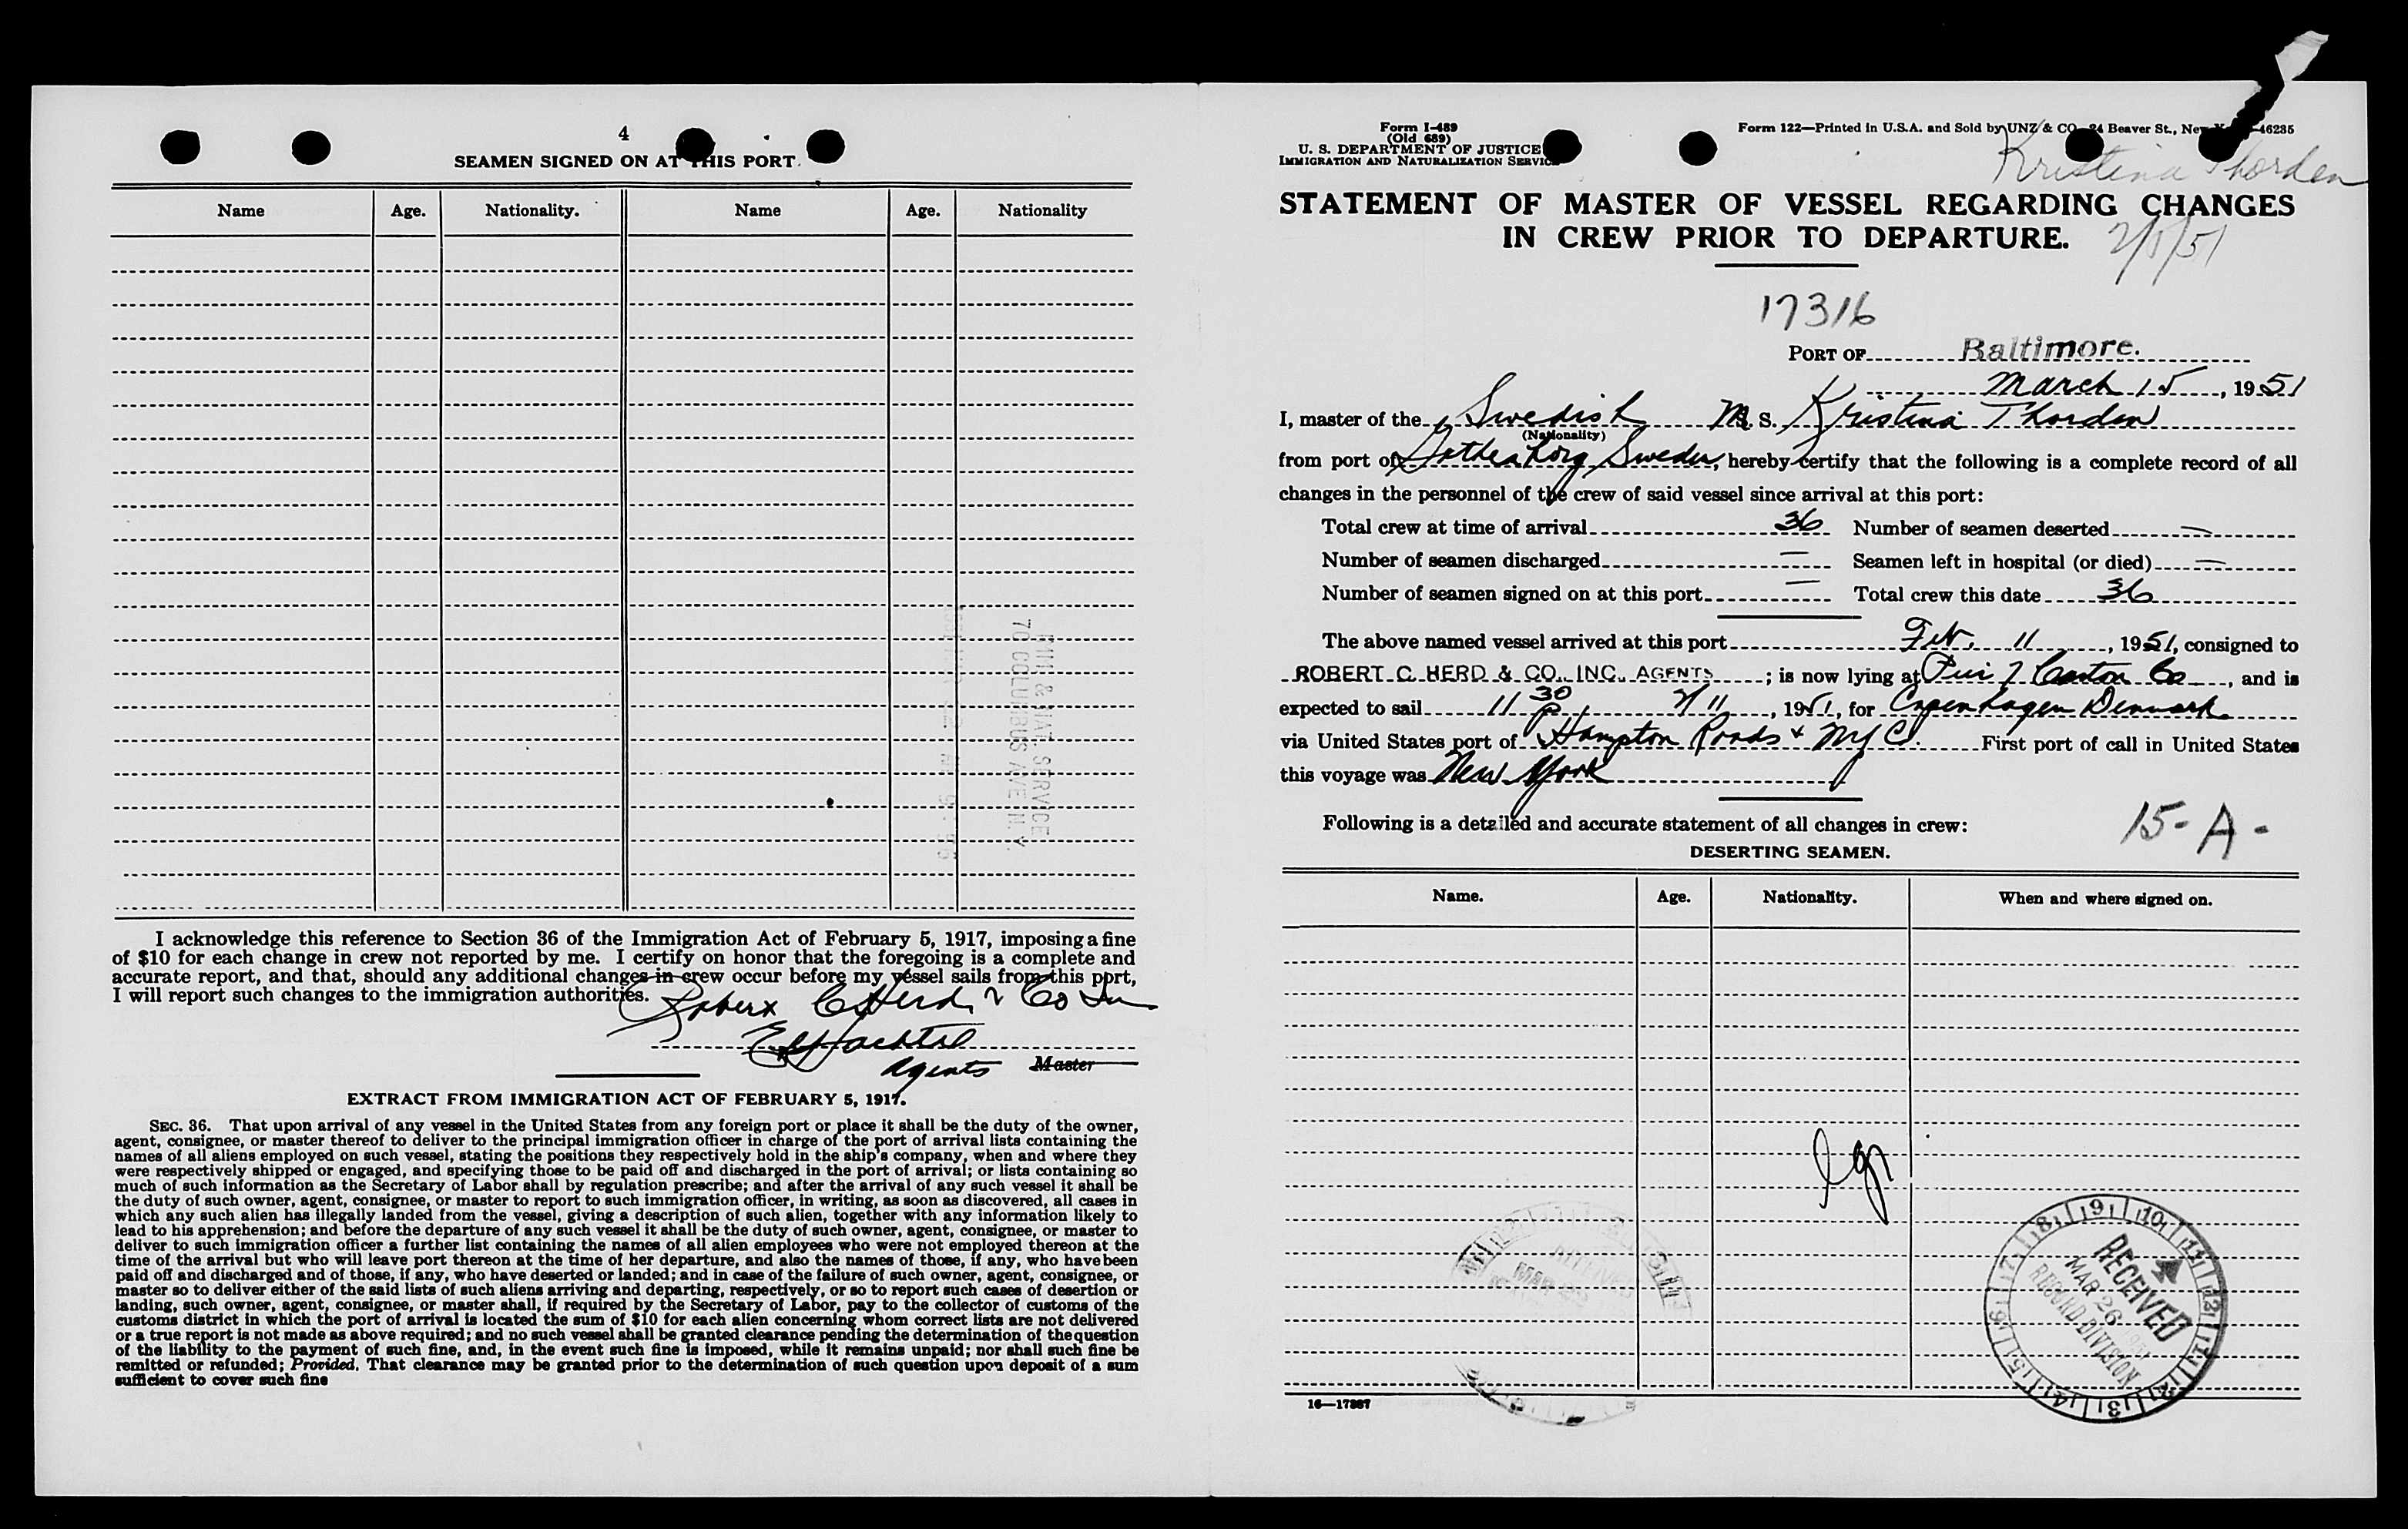 4
SEAMEN SIGNED ON AT THIS PORT.
Name Age. Nationality. Name Age. Nationality
IMM. & NAT. SERVICE
70 COLUMBUS AVE N.Y.
I acknowledge this reference to Section 36 of the Immigration Act of February 5, 1917, imposing a fine
of $10 for each change in crew not reported by me. I certify on honor that the foregoing is a complete and
accurate report, and that, should any additional changes in crew occur before my vessel sails from this port,
I will report such changes to the immigration authorities.
Robert C Herd & Co Inc
Agents Master
EXTRACT FROM IMMIGRATION ACT OF FEBRUARY 5, 1917.
SEC. 36. That upon arrival of any vessel in the United States from any foreign port or place it shall be the duty of the owner,
agent, consignee, or master thereof to deliver to the principal immigration officer in charge of the port of arrival lists containing the
names of all aliens employed on such vessel, stating the positions they respectively hold in the ship's company, when and where they
were respectively shipped or engaged, and specifying those to be paid off and discharged in the port of arrival; or lists containing so
much of such information as the Secretary of Labor shall by regulation prescribe; and after the arrival of any such vessel it shall be
the duty of such owner, agent, consignee, or master to report to such immigration officer, in writing, as soon as discovered, all cases in
which any such alien has illegally landed from the vessel, giving a description of such alien, together with any information likely to
lead to his apprehension; and before the departure of any such vessel it shall be the duty of such owner, agent, consignee, or master to
deliver to such immigration officer a further list containing the names of all alien employees who were not employed thereon at the
time of the arrival but who will leave port thereon at the time of her departure, and also the names of those, if any, who have been
paid off and discharged and of those, if any, who have deserted or landed; and in case of the failure of such owner, agent, consignee, or
master so to deliver either of the said lists of such aliens arriving and departing, respectively, or so to report such cases of desertion or
landing, such owner, agent, consignee, or master shall, if required by the Secretary of Labor, pay to the collector of customs of the
customs district in which the port of arrival is located the sum of $10 for each alien concerning whom correct lists are not delivered
or a true report is not made as above required; and no such vessel shall be granted clearance pending the determination of the question
of the liability to the payment of such fine, and, in the event such fine is imposed, while it remains unpaid; nor shall such fine be
remitted or refunded; Provided, That clearance may be granted prior to the determination of such question upon deposit of a sum
sufficient to cover such fine
Form I-489
(Old 689)
U. S. DEPARTMENT OF JUSTICE
IMMIGRATION AND NATURALIZATION SERVICE
Form 122—Printed in U.S.A. and Sold by UNZ & CO., 24 Beaver St., New 46235
Kristina Thorden
STATEMENT OF MASTER OF VESSEL REGARDING CHANGES
IN CREW PRIOR TO DEPARTURE.
17316
PORT OF Baltimore.
March 15, 1951
I, master of the Swedish M. S. Kristina Thorden
(Nationality)
from port of Gothenborg Sweden, hereby certify that the following is a complete record of all
changes in the personnel of the crew of said vessel since arrival at this port:
Total crew at time of arrival 36 Number of seamen deserted —
Number of seamen discharged — Seamen left in hospital (or died) —
Number of seamen signed on at this port — Total crew this date 36
The above named vessel arrived at this port Feb. 11, 1951, consigned to
ROBERT C. HERD & CO., INC. AGENTS; is now lying at Pier 7 Canton Co, and is
expected to sail 11 30 P 2/11, 1951, for Copenhagen Denmark
via United States port of Hampton Roads & NYC. First port of call in United States
this voyage was New York
Following is a detailed and accurate statement of all changes in crew:
15-A-
DESERTING SEAMEN.
Name. Age. Nationality. When and where signed on.
RECEIVED
MAR 26 1951
RECORD DIVISION
16—17387